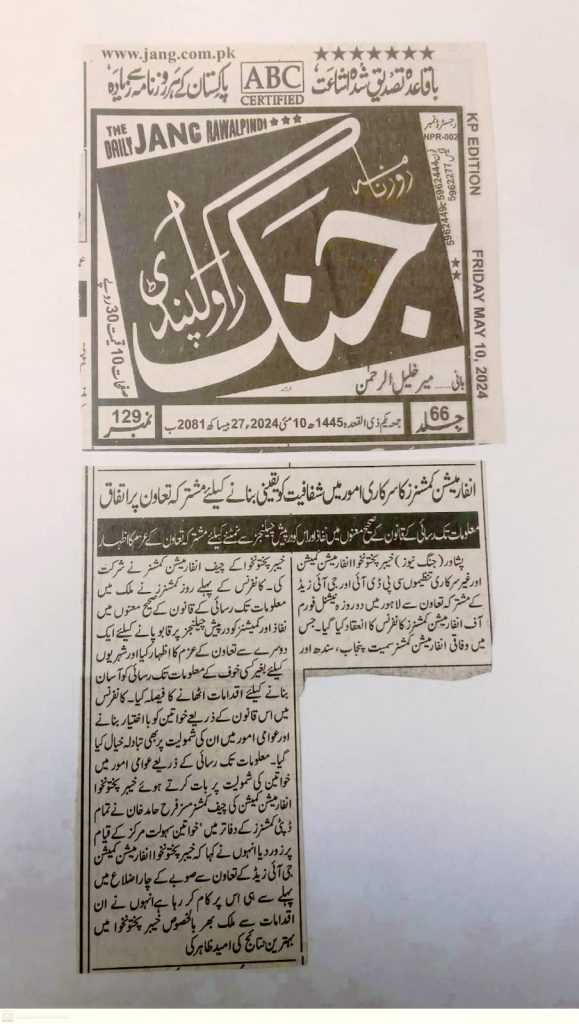 www.jang.com.pk
★★★★★★★
پاکستان کے ہر روزنامہ سے زیادہ، ABC CERTIFIED باقاعدہ تصدیق شدہ اشاعت،
THE DAILY JANG RAWALPINDI ★★★
رجسٹرڈ نمبر
NPR-002
KP EDITION
FRIDAY MAY 10, 2024
روزنامہ
جنگ
راولپنڈی
صفحات 10 قیمت 30 روپے
بانی ...... میر خلیل الرحمٰن
جلد 66
جمعہ یکم ذی القعدہ 1445ھ 10 مئی 2024ء، 27 بیساکھ 2081 ب
نمبر 129
انفارمیشن کمشنرز کا سرکاری امور میں شفافیت کو یقینی بنانے کیلئے مشترکہ تعاون پر اتفاق
معلومات تک رسائی کے قانون کے صحیح معنوں میں نفاذ اور اس کو درپیش چیلنجز سے نمٹنے کیلئے مشترکہ تعاون کے عزم کا اظہار
پشاور (جنگ نیوز) خیبر پختونخوا انفارمیشن کمیشن
اور غیر سرکاری تنظیموں سی پی ڈی آئی اور جی آئی زیڈ
کے مشترکہ تعاون سے لاہور میں دو روزہ نیشنل فورم
آف انفارمیشن کمشنرز کانفرنس کا انعقاد کیا گیا۔ جس
میں وفاقی انفارمیشن کمشنر سمیت پنجاب، سندھ اور
خیبر پختونخوا کے چیف انفارمیشن کمشنرز نے شرکت
کی۔ کانفرنس کے پہلے روز کمشنرز نے ملک میں
معلومات تک رسائی کے قانون کے صحیح معنوں میں
نفاذ اور کمیشنز کو درپیش چیلنجز پر قابو پانے کیلئے ایک
دوسرے سے تعاون کے عزم کا اظہار کیا اور شہریوں
کیلئے بغیر کسی خوف کے معلومات تک رسائی کو آسان
بنانے کیلئے اقدامات اٹھانے کا فیصلہ کیا۔ کانفرنس
میں اس قانون کے ذریعے خواتین کو با اختیار بنانے
اور عوامی امور میں ان کی شمولیت پر بھی تبادلہ خیال کیا
گیا۔ معلومات تک رسائی کے ذریعے عوامی امور میں
خواتین کی شمولیت پر بات کرتے ہوئے خیبر پختونخوا
انفارمیشن کمیشن کی چیف کمشنر مسز فرح حامد خان نے تمام
ڈپٹی کمشنرز کے دفاتر میں 'خواتین سہولت مرکز کے قیام
پر زور دیا انہوں نے کہا کہ خیبر پختونخوا انفارمیشن کمیشن
جی آئی زیڈ کے تعاون سے صوبے کے چار اضلاع میں
پہلے سے ہی اس پر کام کر رہا ہے انہوں نے ان
اقدامات سے ملک بھر بالخصوص خیبر پختونخوا میں
بہترین نتائج کی امید ظاہر کی